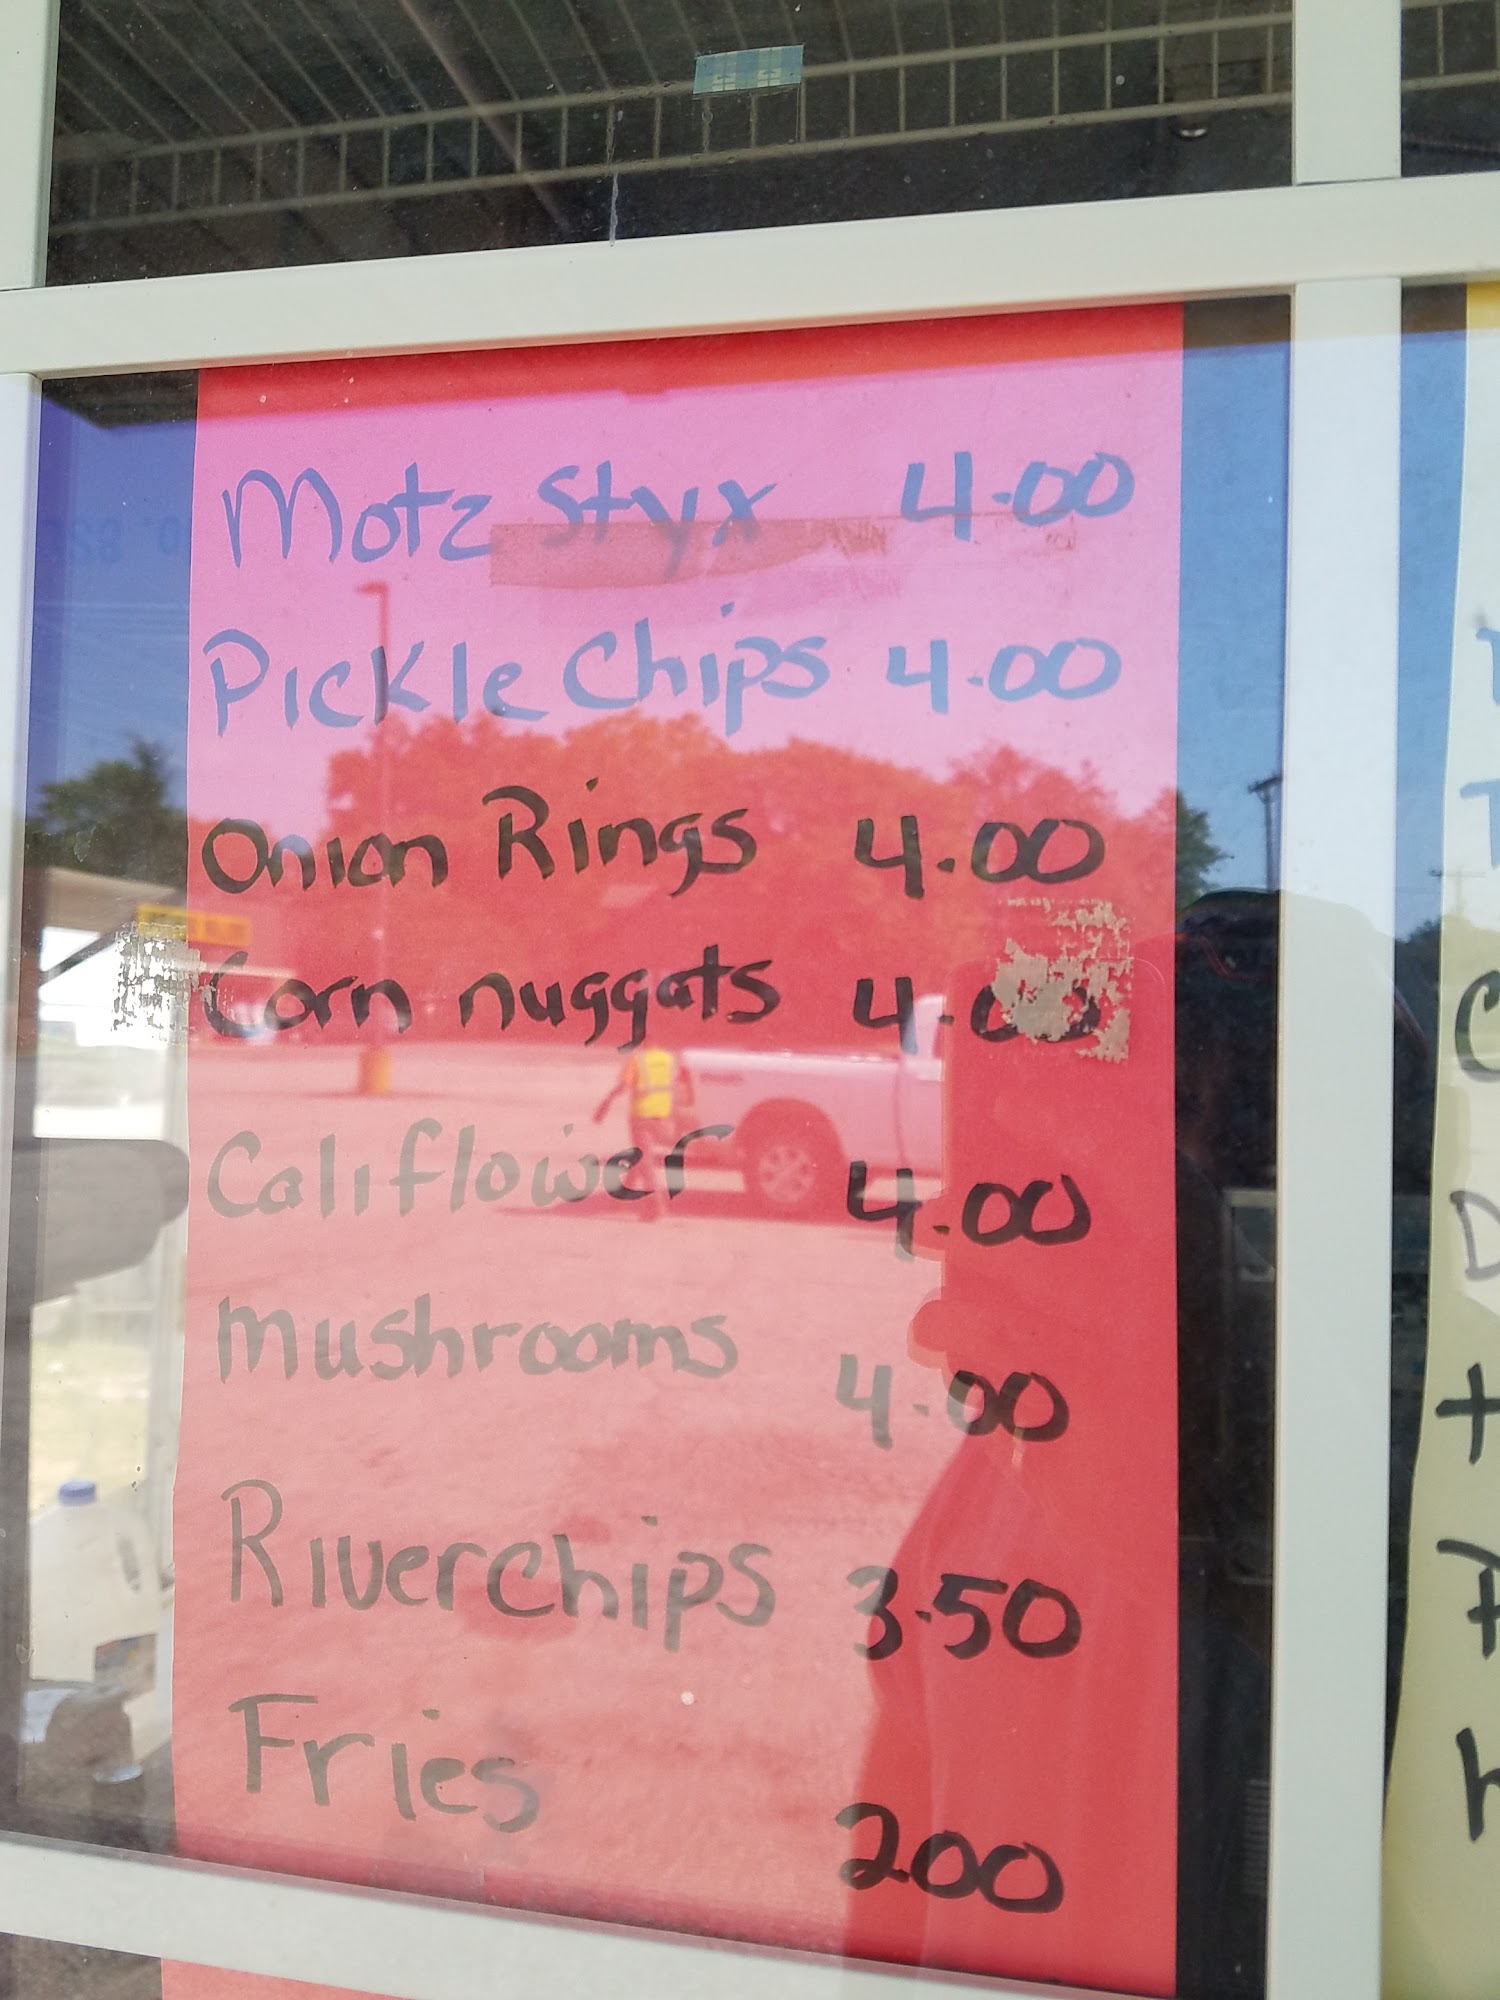 Motz Styx 4.00
Pickle Chips 4.00
Onion Rings 4.00
Corn nuggats 4.00
Califlower 4.00
mushrooms 4.00
Riverchips 3.50
Fries 200